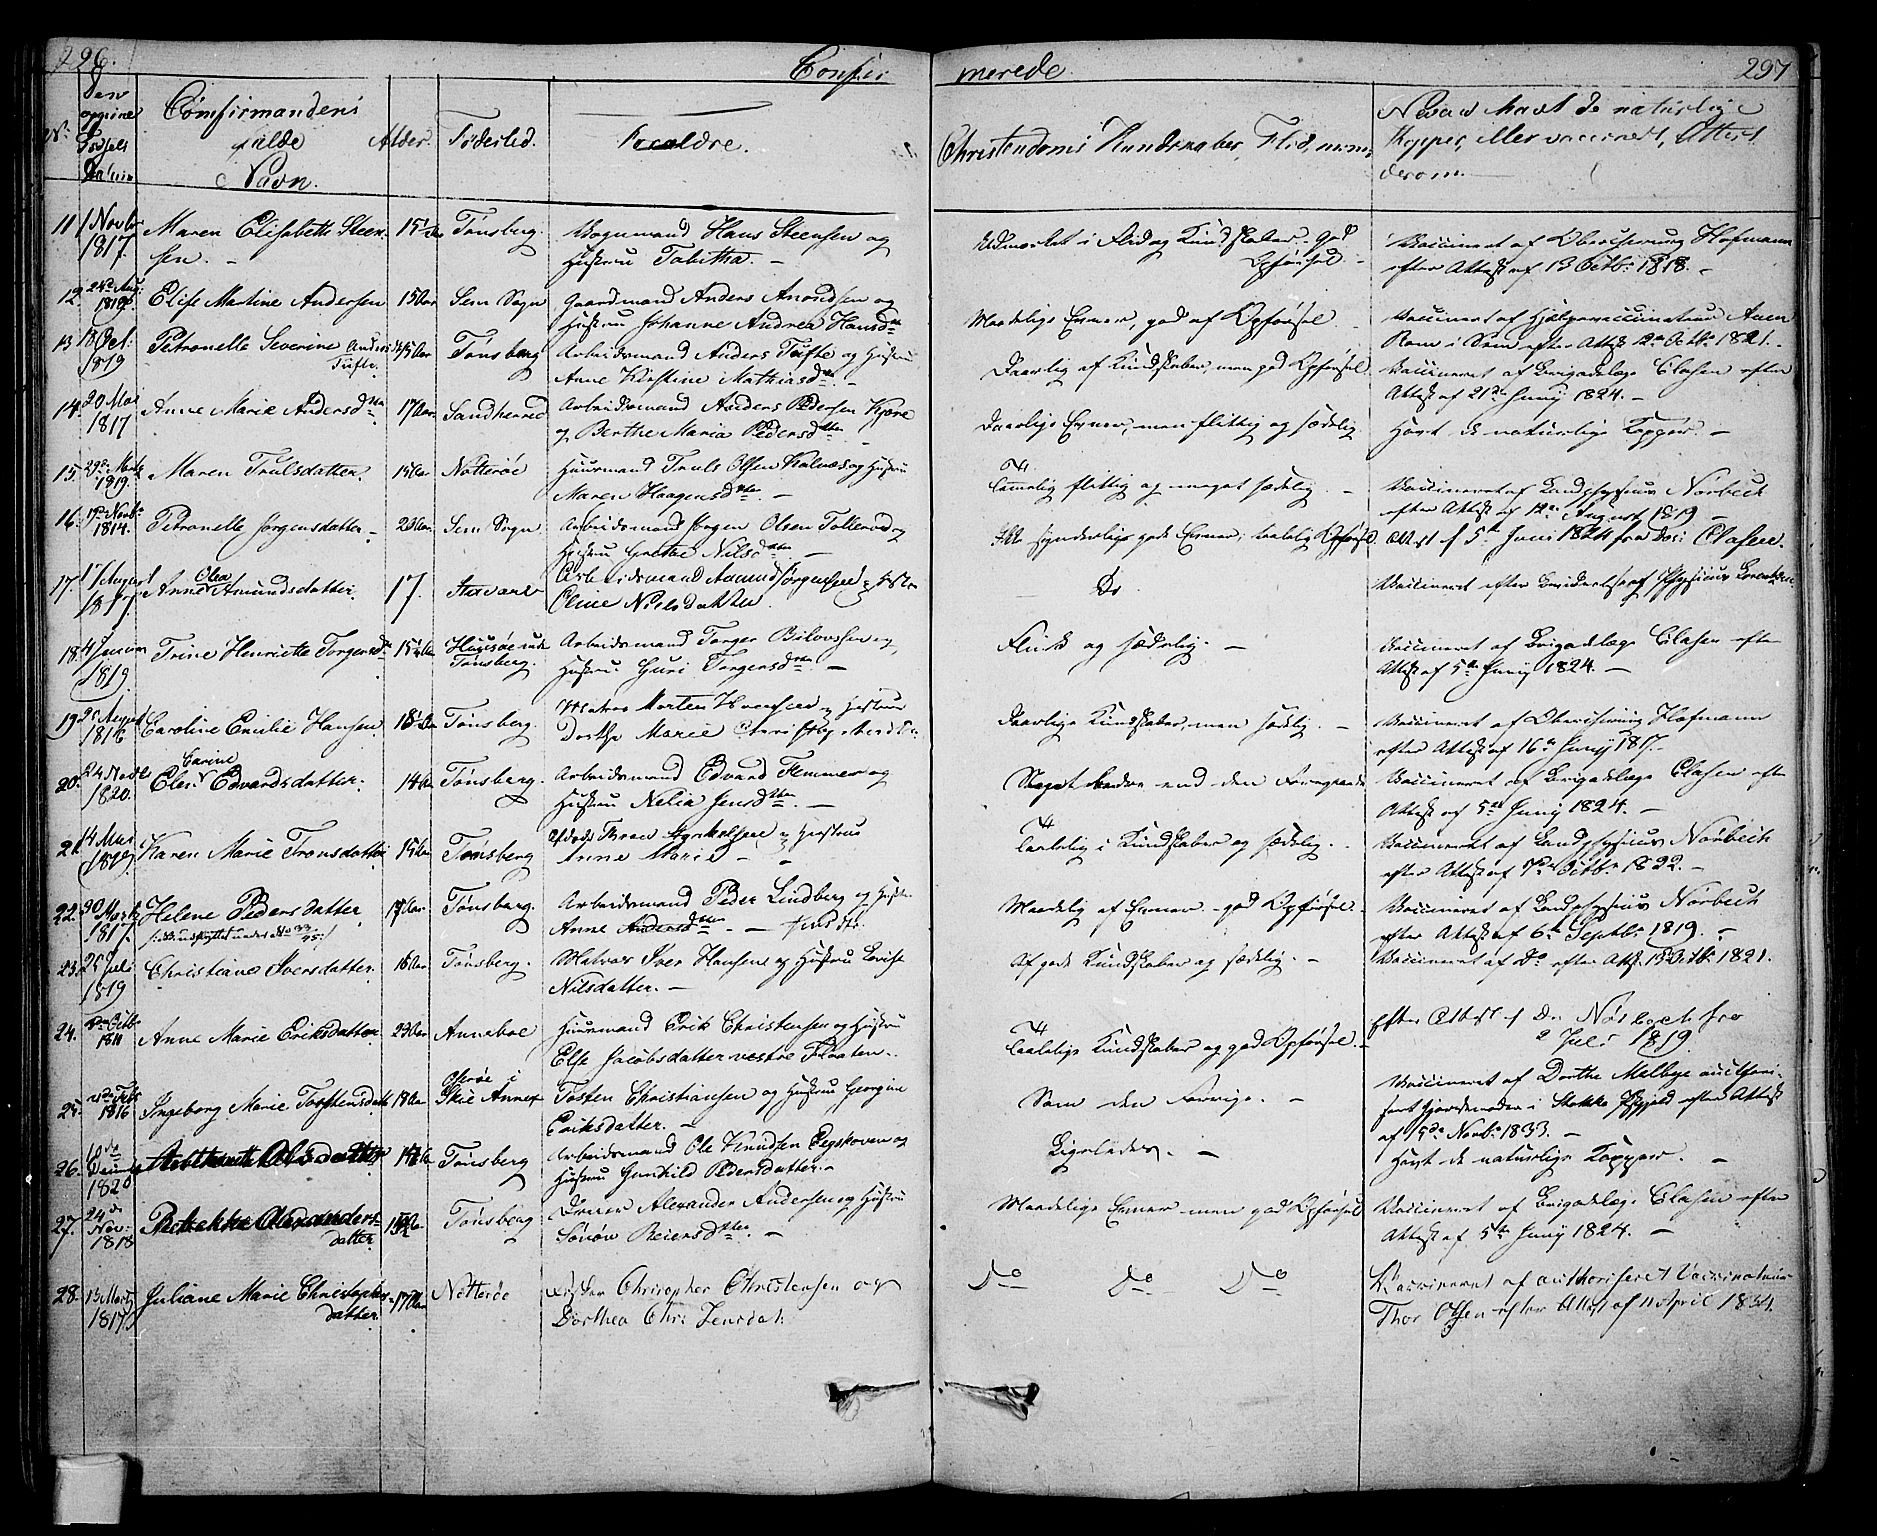 296.
Confir
merede.
297
No
Den
Fødsels
Datum
Confirmandens
fulde
Navn.
Alder.
Fødested.
Forældre.
Christendoms Kundskaber, Flid, m:m:
Hvad havt de naturlige
Kopper, eller vaccineret, Attest
derom.
11. 1 Novbr 1817. Maren Elisabeth Steen-
sen. 15 Tønsberg. Bogmand Hans Steensen og
Hustru Tabitha.
Udmærket i Flid og Kundskaber. God
Opførsel.
Vaccineret af Hofmann
efter Attest af 13 Octb: 1818.
12. 24de Aug: Elise Martine Andersen 15 Aar Sem Sogn Gaardmand Anders Amundsen og
Hustru Johanne Andrea Hansdtr
Maadelige Evner, god af Opførsel.
Vaccineret af Hjelpevaccinateur Aven
Rom i Sem efter Attest 12te Octb: 1821.
13 18 Oct: 1819 Petronelle Severine Anders
Tufte. 15 Aar Tønsberg Arbeidsmand Anders Tufte og Hustru
Anne Kirstine Mathiasdtr.
Daarlig af Kundskaber, men god Opførsel.
Vaccineret af Brigadelæge Clasen efter
Attest af 21de Juny 1824.
14. 20 Mai 1817 Anne Marie Andersdtr 17 Aar Sandherred Arbeidsmand Anders Pedersen Kjære
og Berthe Maria Pedersdtr.
Daarlige Evner, men flittig og sædelig.
Havt de naturlige Kopper.
15. 29de Marts 1819. Maren Trulsdatter. 15 Aar Nøtterøe Huusmand Truls Olsen Kalnes og Hustru
Maren Haagensdtr.
Temmelig flittig og meget sædelig.
Vaccineret af Landphysicus Nørbech
efter Attest af 12te August 1819
16. 19de Novbr 1814. Petronelle Jørgensdatter. 20 Aar. Sem Sogn. Arbeidsmand Jørgen Olsen Tollerød og
Hustru Grethe Nilsdtr.
Ikke synderlig gode Evner; taalelig Opførsel
Attest af 5te Juni 1824 fra Doc: Clasen.
17. 17 August 1817 Anne Olea Amundsdatter. 17. Stavern Arbeidsmand Amund Jørgensen og Hustru
Eline Nielsdatter.
Do
Vaccineret efter Attest af Physicus
18. 4 Januar 1819 Trine Henriette Torgersdtr 15 Aar Huusøe ved
Tønsberg. Arbeidsmand Torger Bilovssen og
Hustru Guri Torgersdtr.
Flink og sædelig.
Vaccineret af Brigadelæge Clasen efter
Attest af 5te Juny 1824.
19. 25 August 1816 Caroline Emilie Hansen 18 Aar Tønsberg. Matros Morten Hansen og Hustru
Dorthe Marie
Daarlige Kundskaber, men sædelig.
Vaccineret af Hofmann
efter Attest af 16de Juny 1817.
20. 24 1820. Elen Carine Edvardsdatter. 14 Aar Tønsberg. Arbeidsmand Edvard Femmer og
Hustru Nelia Jensdtr.
Noget bedre end den Foregaaende
Vaccineret af Brigadelæge Clasen efter
Attest af 5te Juny 1824.
21. 4 Mai 1819 Karen Marie Tronsdatter 15 Aar Tønsberg Tron og Hustru
Anne Marie
Taalelig i Kundskaber og sædelig.
Vaccineret af Landphysicus Nørbech
efter Attest af 7de Octb: 1822.
22. 30 Marts 1817. Helene Pedersdatter 17 Aar. Tønsberg. Arbeidsmand Peder Lindberg og Hustru
Anne Andersdtr.
Maadelig af Evner god Opførsel.
Vaccineret af Landphysicus Nørbech
efter Attest af 6te Septb: 1819.
23. 25 Juli 1819 Christiane Iversdatter. 16 Aar. Tønsberg. Matros Iver Hansen og Hustru Lovise
Nilsdatter.
Af gode Kundskaber og sædelig.
Vaccineret af Do efter Attest 15 Octb: 1821.
24. Octbr 1811 Anne Marie Eriksdatter 23 Aar Anneboe Huusmand Erik Christensen og Hustru
Else Jacobsdatter vestre Floaten.
Taalelige Kundskaber og god Opførsel.
Efter Attest af Dr. Nørbech fra
2 Juli 1819.
25. Febr 1816 Ingeborg Marie Tostensdatter 18 Aar i
Skie Annex Tosten Christiansen og Hustru Georgine
Eriksdatter.
Som den Forrige.
Vaccineret af Dorthe Melbye authori-
seret Gjordemoder i Stokke Præstegjeld efter Attest
af 15de Novb: 1833.
26. 1820 Olsdatter 14 Aar Tønsberg Arbeidsmand Ole Knudsen Bøgskoven og
Hustru Gunhild Pedersdatter.
Ligeledes.
Havt de naturlige Kopper.
27. 24de Nov: 1818 Alexanders-
datter Tønsberg Alexander Andersen og Hustru
Beiersdtr.
Maadelige Evner men god Opførsel
Vaccineret af Brigadelæge Clasen efter
Attest af 5te Juny 1824.
28. 13 Marts 1817. Juliane Marie Christopher-
datter. 17 Aar Nøtterøe Christopher Christensen og
Dorthea Chr: Jensdat:
Do Do Do
Vaccineret af authoriseret Vaccinateur
Thor Olsen efter Attest af 11 April 1834.